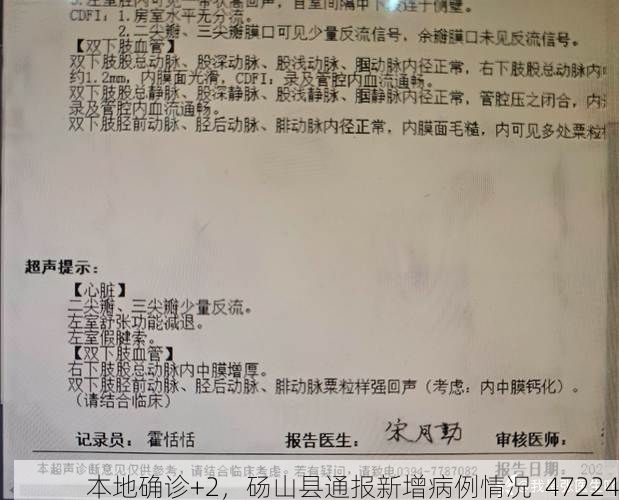 3.左室腔内可见一带状強回声，自室间隔中下段连于侧壁。
CDFI：1.房室水平无分流。
2.二尖瓣、三尖瓣膜口可见少量反流信号，余瓣膜口未见反流信号。
【双下肢血管】
双下肢股总动脉、股深动脉、股浅动脉、腘动脉内径正常，右下肢股总动脉内
约1.2mm，内膜面光滑，CDFI：录及管腔内血流通畅。
双下肢股总静脉、股深静脉、股浅静脉、腘静脉内径正常，管腔压之闭合，内
录及管腔内血流通畅。
双下肢胫前动脉、胫后动脉、腓动脉内径正常，内膜面毛糙，内可见多处粟粒
超声提示：
【心脏】
二尖瓣、三尖瓣少量反流。
左室舒张功能减退。
左室假腱索。
【双下肢血管】
右下肢股总动脉内中膜增厚。
双下肢胫前动脉、胫后动脉、腓动脉粟粒样强回声（考虑：内中膜钙化）。
（请结合临床）
记录员： 霍恬恬 报告医生： 宋月勤 审核医师：
本超声诊断意见仅供参考，请结合临床考虑。若有疑问，请致电0394-7787082 报告日期： 202
本地确诊+2，砀山县通报新增病例情况·47224